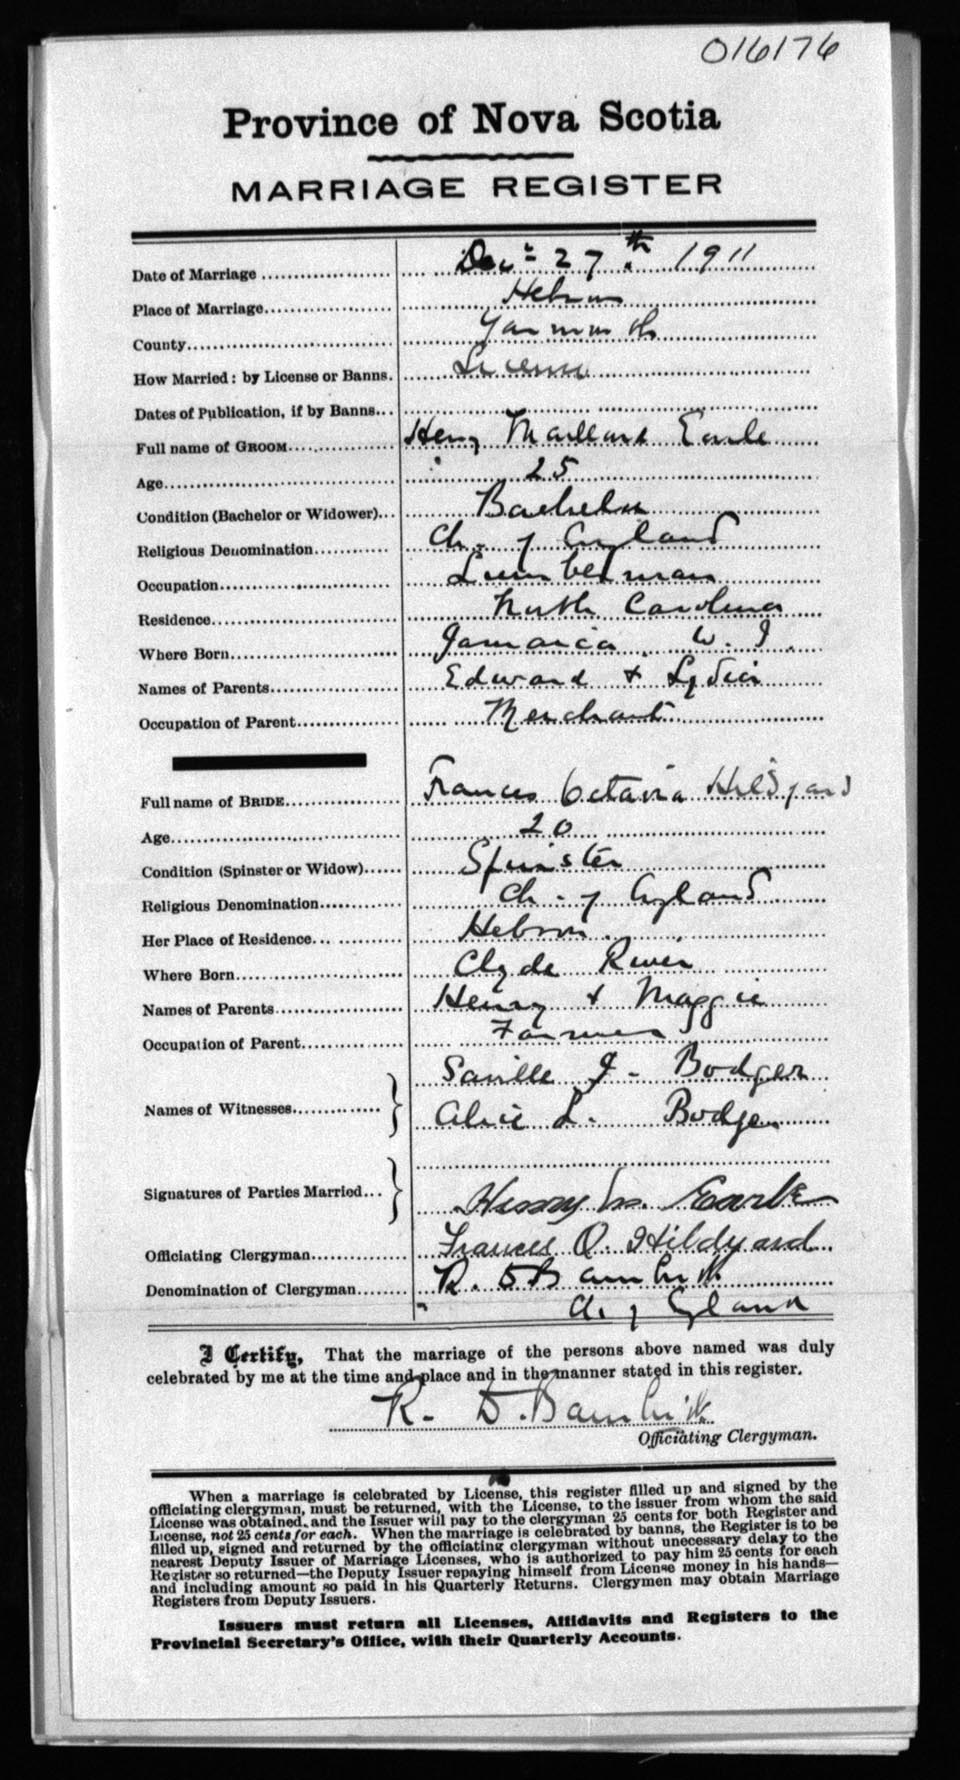 016176
Province of Nova Scotia
MARRIAGE REGISTER
Date of Marriage Dec. 27th. 1911
Place of Marriage Hebron
County Yarmouth
How Married: by License or Banns. License
Dates of Publication, if by Banns...
Full name of GROOM Henry Maillard Earle
Age 25
Condition (Bachelor or Widower)... Bachelor
Religious Denomination Ch. of England
Occupation Lumberman
Residence North Carolina
Where Born Jamaica W. I.
Names of Parents Edward + Lydia
Occupation of Parent Merchant
Full name of BRIDE Frances Octavia Hildyard
Age 20
Condition (Spinster or Widow) Spinster
Religious Denomination Ch. of England
Her Place of Residence Hebron
Where Born Clyde River
Names of Parents Henry + Maggie
Occupation of Parent Farmer
Saville J. Bodger
Names of Witnesses
Alice L. Bodger
Signatures of Parties Married...
Henry M Earle
Officiating Clergyman Frances O. Hildyard
Denomination of Clergyman R. D. Bambrick
Ch of England
I Certify, That the marriage of the persons above named was duly
celebrated by me at the time and place and in the manner stated in this register.
R. D. Bambrick
Officiating Clergyman.
When a marriage is celebrated by License, this register filled up and signed by the
officiating clergyman, must be returned, with the License, to the issuer from whom the said
License was obtained, and the Issuer will pay to the clergyman 25 cents for both Register and
License, not 25 cents for each. When the marriage is celebrated by banns, the Register is to be
filled up, signed and returned by the officiating clergyman without unecessary delay to the
nearest Deputy Issuer of Marriage Licenses, who is authorized to pay him 25 cents for each
Register so returned—the Deputy Issuer repaying himself from License money in his hands—
and including amount so paid in his Quarterly Returns. Clergymen may obtain Marriage
Registers from Deputy Issuers.
Issuers must return all Licenses, Affidavits and Registers to the
Provincial Secretary's Office, with their Quarterly Accounts.